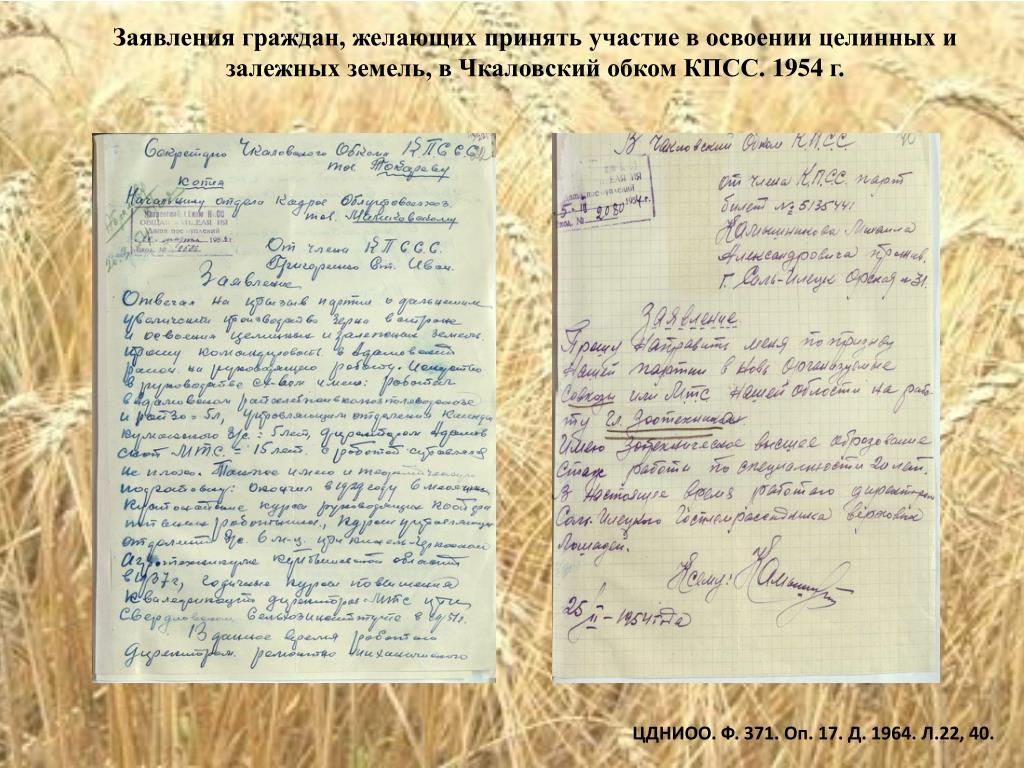 Заявления граждан, желающих принять участие в освоении целинных и
залежных земель, в Чкаловский обком КПСС. 1954 г.
Секретарю Чкаловского Обкома КПССС
тов. Тобареву
копия
Начальнику отдела кадров
тов.
От члена КПССС.
Григоренко Ст. Иван.
Заявление
Отвечая на призыв партии о дальнейшем
увеличении производства зерна в стране
и освоения целинных и залежных земель,
прошу командировать в Адамовский
район на руководящего работу.
в руководстве имею: работал
в Адамовском
и райзо = 5л, управляющим отделения
: 5 лет, директором Адамов
ской МТС. = 15 лет. с работой справлялся
не плохо. Также имею и
подготовку: окончил в году в
курсы руководящих
работников, Курсы управляющих
отделений 6 м-ц. при Кинель-Черкасском
Агротехникуме Куйбышевской области
в 1937г, годичные курсы повышения
квалификации директоров МТС при
Свердловском Сельхозинституте в
В данное время работаю
директором ремонтно механического
В Чкаловский Обком КПСС
40
2080
1954 г.
от члена К.П.СС. парт
билет № 5135441
Камышникова Михаила
Александровича прожив.
г. Соль-Илецк Орская № 31.
Заявление
Прошу направить меня по призыву
нашей партии в новь организуемые
Совхозы или МТС нашей области на рабо-
ту Гл. Зоотехником.
Имею Зотехническое высшее образование
Стаж работы по специальности 20 лет.
В настоящее время работаю директором
Соль-Илецкого Госплемрассадника верховых
Лошадей.
К сему:
25/II - 1954 года
ЦДНИОО. Ф. 371. Оп. 17. Д. 1964. Л.22, 40.